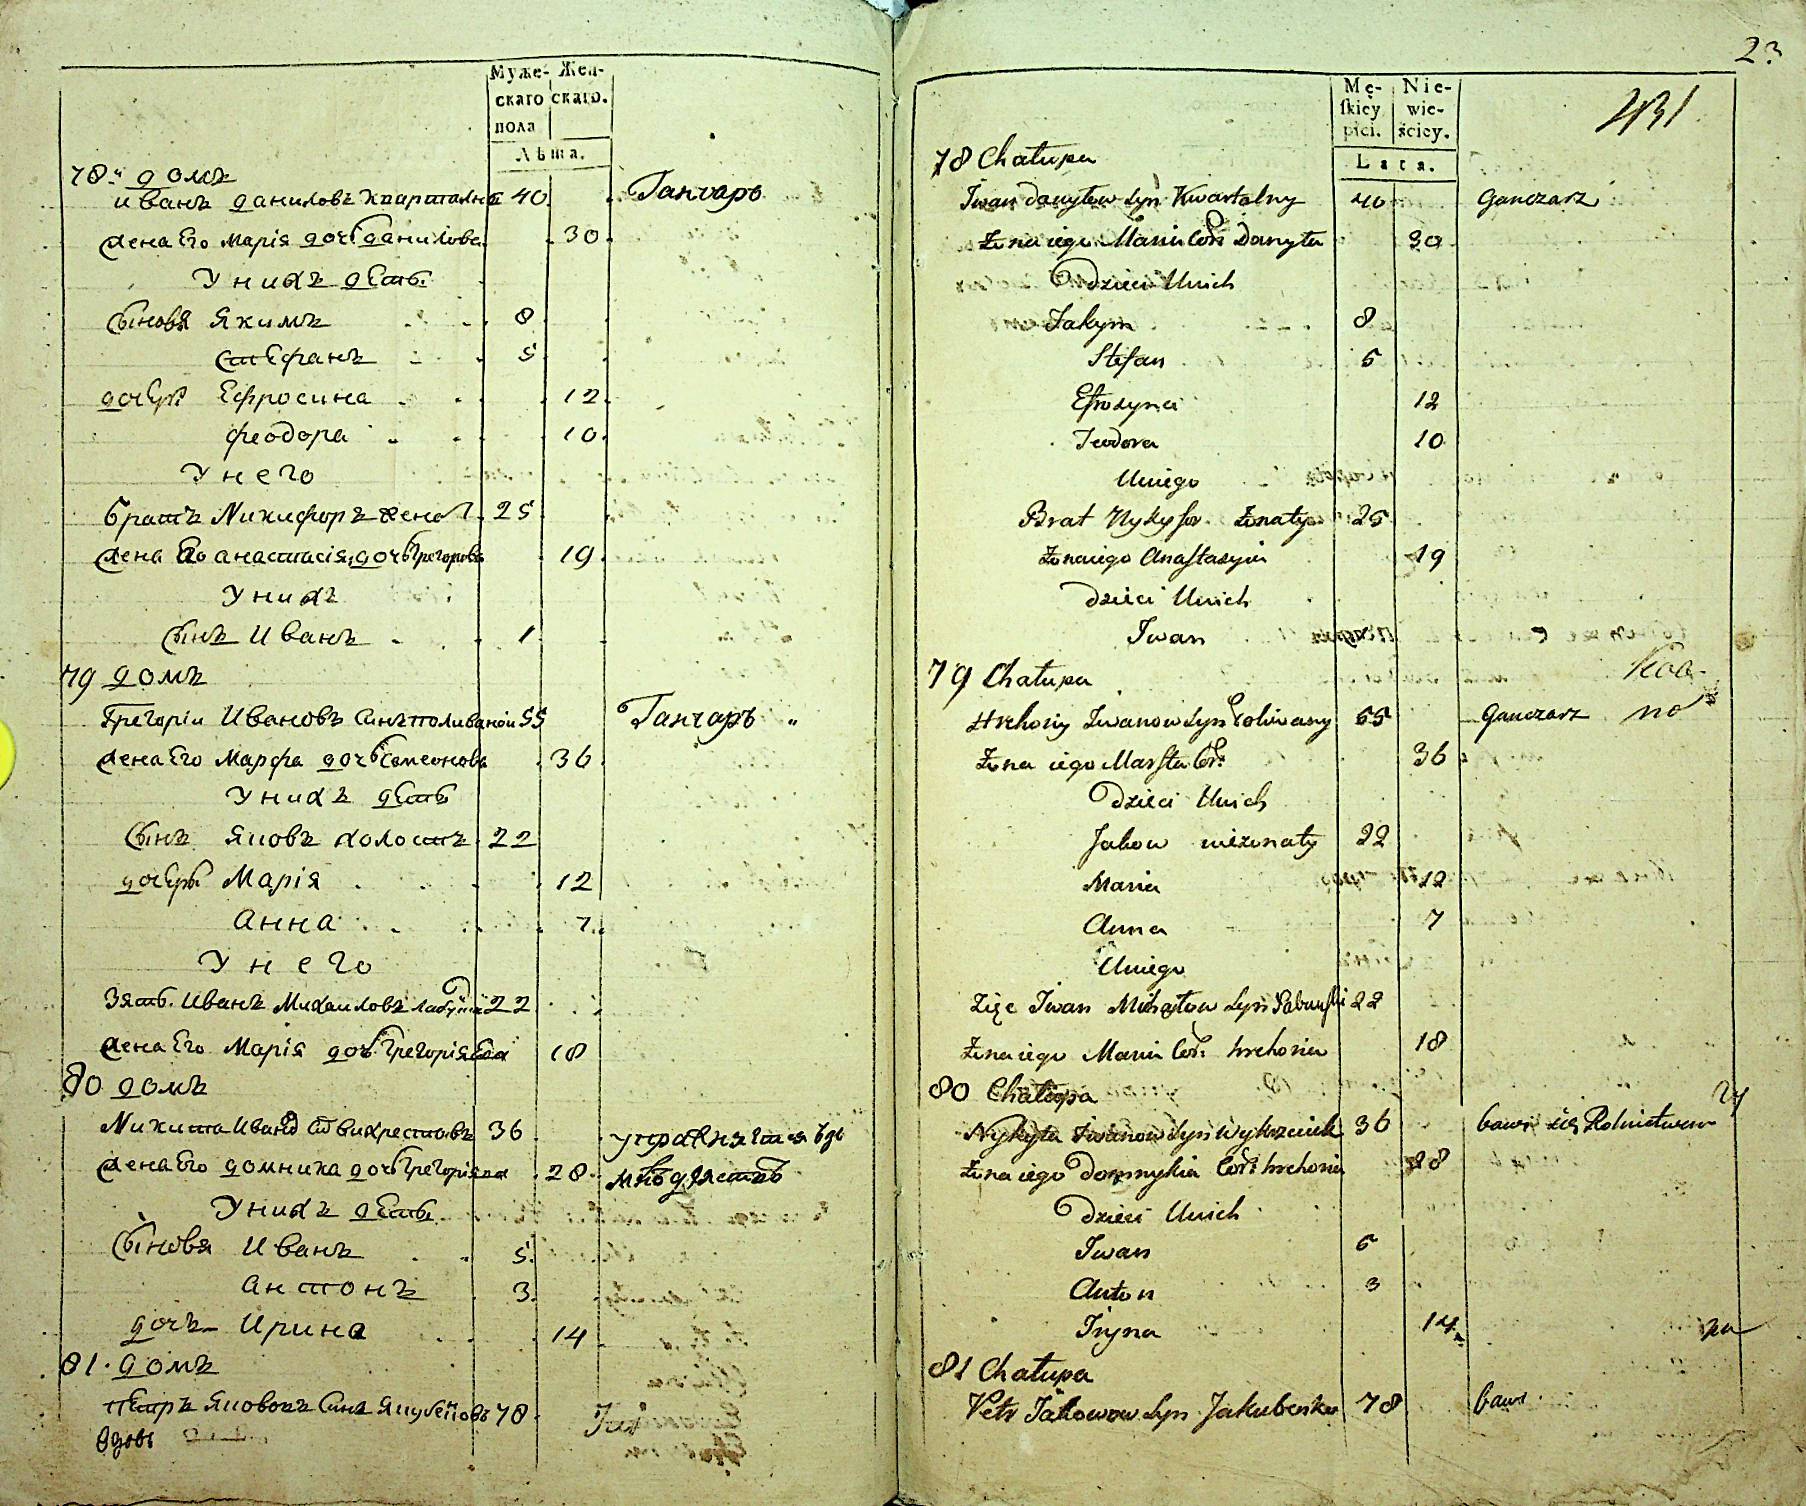 Муже- Жен-
скаго скаго.
пола
Лѣта.
78й домъ
иванъ даниловъ Квартални 40 Ганчаръ
жена Его Марія дочь данилова 30
У нихъ дѣти
Сыновя Якимъ 8
Стефанъ 5
дочери Ефросина 12
феодора 10
У него
братъ Никифоръ женат 25
жена Его анастасія дочь Григорова 19
У нихъ
Сынъ Иванъ 1
79 домъ
Грегорій Ивановъ Синъ поливаной 55 Ганчаръ
жена Его Марфа дочь Семеонова 36
У нихъ дѣти
Сынъ Яковъ холостъ 22
дочери Марія 12
анна 7
У него
Зять Иванъ Михаиловъ 22
жена Его Марія дочь Грегоріева 18
80 домъ
Микита Иванов Викрестовъ 36
жена Его домника дочь Грегоріева 28
У нихъ дѣти
Сыновя Иванъ 5
антонъ 3
дочъ Ирина 14
81 домъ
петръ Якововъ Синъ 78
вдовъ
23
Mę- Nie-
skiey wie-
płci. ściey.
Lata.
431
78 Chałupa
Iwan Danyłow Syn Kwartalny 40 Ganczarz
Żona iego Maria Cor Danyła 30
Dzieci Unich
Jakym 8
Stefan 5
Efrozyna 12
Teodora 10
Uniego
Brat Nykyfor Żonaty 25
Żona iego Anastazyia 19
Dzieci Unich
Iwan
79 Chałupa
Hrehory Iwanow Syn Poliwany 55 Ganczarz
Żona iego Marfta Cor: 36
Dzieci Unich
Jakow nieżonaty 22
Maria 12
Anna 7
Uniego
Zięc Iwan Michayłow Syn 22
Żona iego Maria Cor: Hrehoria 18
80 Chałupa
Nykyta Iwanow Syn 36 bawi się Rolnictwem
Żona iego Domnykia Cor: Hrehoria 28
Dzieci Unich
Iwan 5
Anton 3
Iryna 14
81 Chałupa
Petr Jakowow Syn Jakubenko 78 bawi